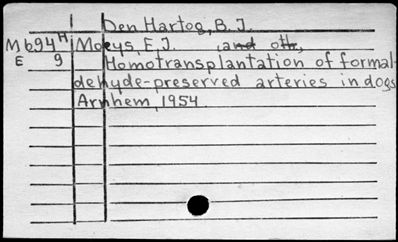 Den Hartog, B. J.
M694H Moeys, E. J. , and oth,
E 9 Homotransplantation of formal-
dehyde-preserved arteries in dogs
Arnhem, 1954.